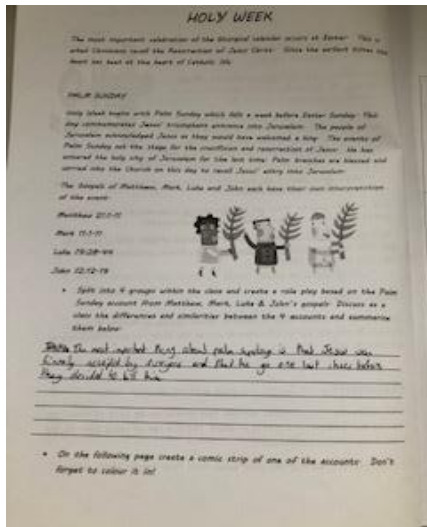 HOLY WEEK
The most important celebration of the liturgical calendar occurs at Easter. This is
when Christians recall the Resurrection of Jesus Christ. Since the earliest times the
feast has been at the heart of Catholic life.
PALM SUNDAY
Holy Week begins with Palm Sunday which falls a week before Easter Sunday. This
day commemorates Jesus' triumphant entrance into Jerusalem. The people of
Jerusalem acknowledged Jesus as they would have welcomed a king. The events of
Palm Sunday set the stage for the crucifixion and resurrection of Jesus. He has
entered the holy city of Jerusalem for the last time. Palm branches are blessed and
carried into the Church on this day to recall Jesus' entry into Jerusalem.
The Gospels of Matthew, Mark, Luke and John each have their own interpretation
of the event:
Matthew 21:1-11
Mark 11:1-11
Luke 19:28-44
John 12:12-19
• Split into 4 groups within the class and create a role play based on the Palm
Sunday account from Matthew, Mark, Luke & John's gospels. Discuss as a
class the differences and similarities between the 4 accounts and summarise
them below:
The most important thing about palm sunday is that Jesus was
finally accepted by everyone and that he go one last cheer before
they decided to kill him
• On the following page create a comic strip of one of the accounts. Don't
forget to colour it in!